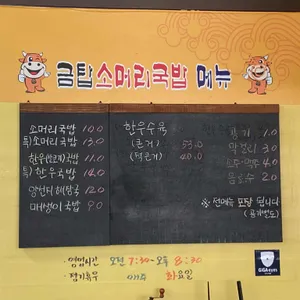 금탑 소머리국밥 메뉴
소머리국밥 10.0
특) 소머리국밥 13.0
한우(안창)국밥 11.0
특) 한우국밥 14.0
양선지해장국 12.0
매생이국밥 9.0
한우수육
(큰거) 53.0
(작은거) 40.0
공기 1.0
막걸리 3.0
소주·맥주 4.0
음료수 2.0
※ 전메뉴 포장 됩니다
(용기별도)
· 영업시간 오전 7:30-오후 8:30
· 정기휴무 매주 화요일